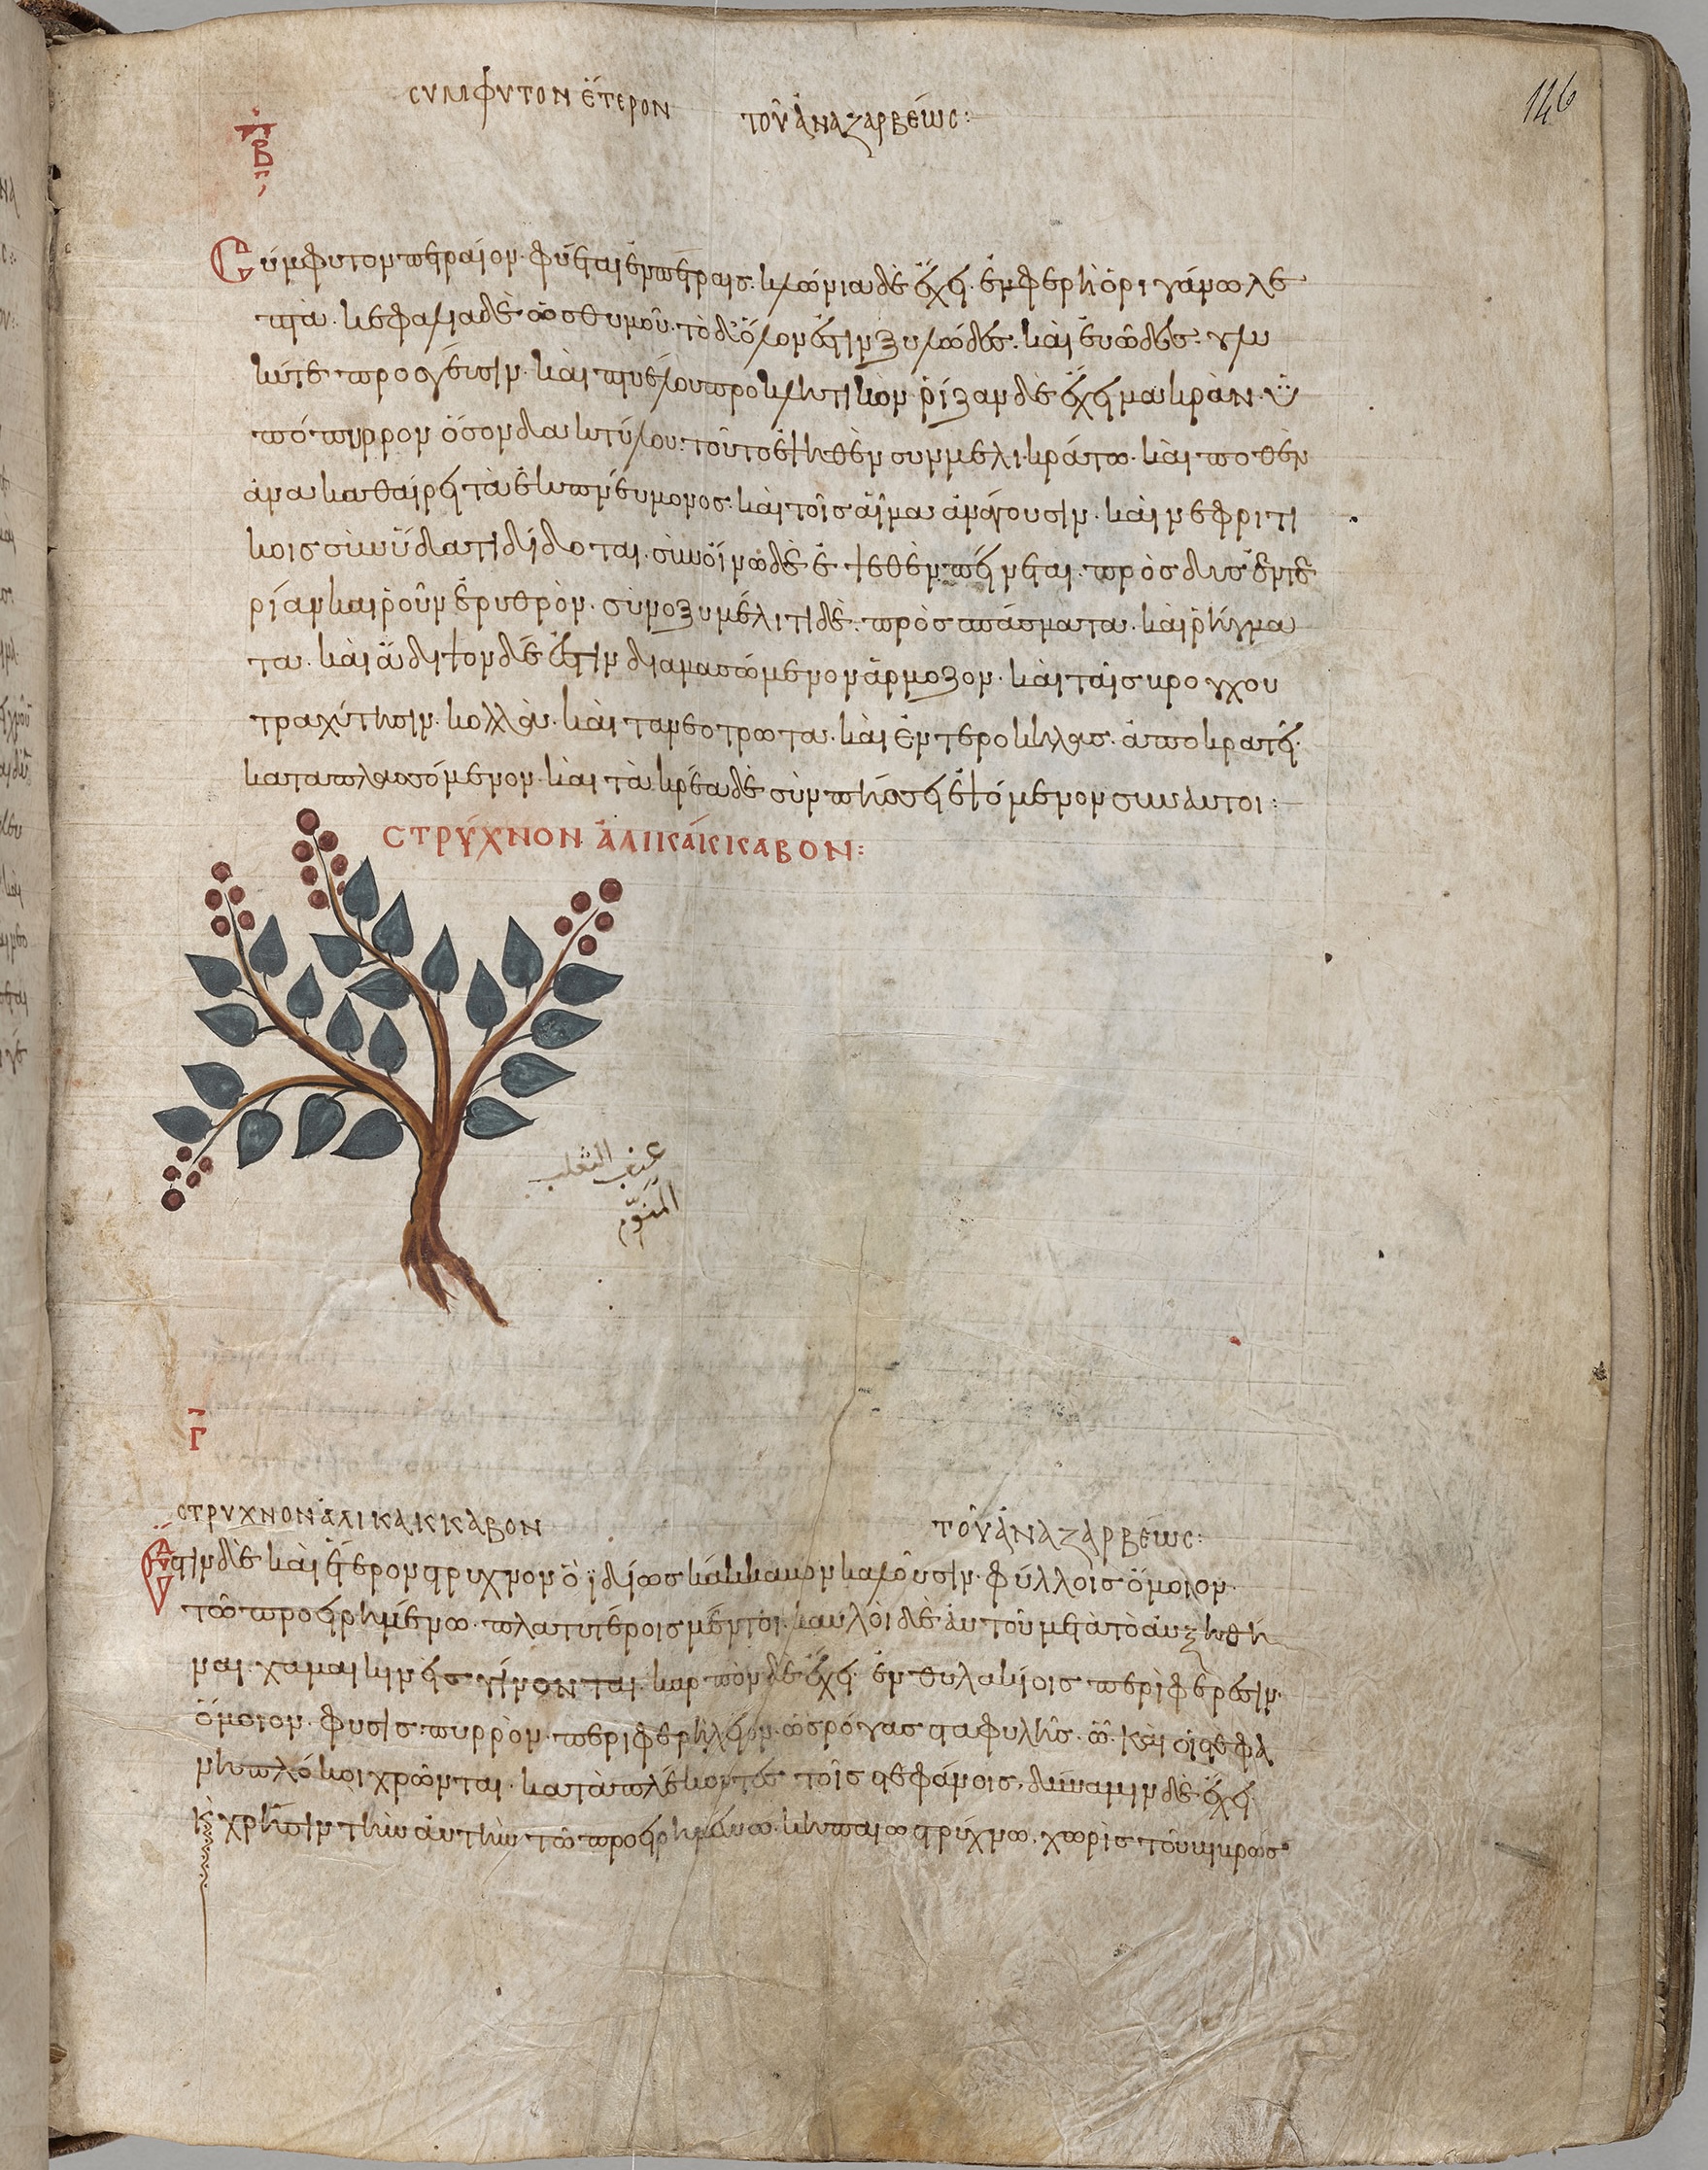 146
ϹΥΜΦΥΤΟΝ ἝΤΕΡΟΝ ΤΟΥ͂ ἈΝΑΖΑΡΒΈΩϹ:
Β
Σύμφυτον πετραῖον· φύεται ἐν πέτραις· κλώνια δὲ ἔχει ἐμφερῆ ὀριγάνω λε
πτὰ· κεφάλια δὲ ὡς θυμοῦ· τὸ δ' ὅλον ἐστὶν ξυλῶδες· καὶ εὐῶδες· γλυ
κύ τε προσγεύσιν· καὶ πτυέλου προκλητικὸν ῥίζαν δὲ ἔχει μακρὰν· ὑ
πόπυρρον ὅσον δακτύλου· τοῦτο ἑψηθὲν συν μελικράτω· καὶ ποθὲν
ἀνακαθαίρει τὰ ἐκ πνεύμονος· καὶ τοῖς αἷμα ἀνάγουσιν· καὶ νεφριτι
κοις σὺν ὕδατι δίδοται· σὺν οἴνω δὲ ἑψεθὲν πίνεται· πρὸς δυσεντε
ρίαν καὶ ῥοῦν ἐρυθρὸν· σὺν οξυμέλιτι δὲ· πρὸς σπάσματα· καὶ ῥήγμα
τα· καὶ ἄδιψον δέ ἐστιν διαμασώμενον ἁρμοζον· καὶ ταῖς βρογχου
τραχύτησιν· κολλᾶ· καὶ τα νεότρωτα· καὶ ἐντεροκήλας· ἀποκρατεῖ·
καταπλασσόμενον· καὶ τὰ κρέα δὲ συνπήσσει ἑψόμενον συν αυτοι:
ϹΤΡΎΧΝΟΝ ἈΛΙΚΆΚΚΑΒΟΝ:
عنب الثعلب
المنوّم
Γ
ϹΤΡΥΧΝΟΝ ἈΛΙΚΑΚΚΑΒΟΝ ΤΟΥ͂ ἈΝΑΖΑΡΒΈΩϹ:
Ἔστιν δὲ καὶ ἕτερον στρυχνον ὃ ϊδίως κάκκαβον καλοῦσιν· φύλλοις ὅμοιον·
τῶ προειρημένω· πλατυτέροις μέντοι· καυλοὶ δὲ αὐτοῦ μετὰ τὸ αὐξηθῆ
ναι· χαμαικλινεῖς γίνονται· καρπὸν δὲ ἔχει· ἐν θυλακίοις περιφερέσιν·
ὅμοιον· φυσὶς· πυρρὸν· περιφερῆ λεῖον· ὡς ρόγας σταφυλῆς· ὧ· καὶ οἱ στεφα
νηπλόκοι χρῶνται· καταπλέκοντες τοῖς στεφάνοις· δύναμιν δὲ ἔχει
κ χρῆσιν τὴν ἀυτὴν τῶ προειρημένω κηπαίω στρύχνω, χωρὶς τοῦ